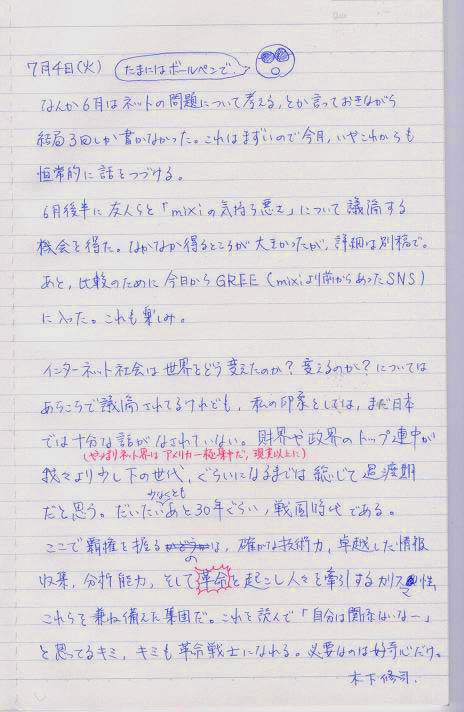 7月4日(火) たまにはボールペンで。
なんか6月はネットの問題について考える、とか言っておきながら
結局3回しか書かなかった。これはまずいので今月、いやこれからも
恒常的に話をつづける。
6月後半に友人らと「mixiの気持ち悪さ」について議論する
機会を得た。なかなか得るところが大きかったが、詳細は別稿で。
あと、比較のために今日からGREE(mixiより前からあったSNS)
に入った。これも楽しみ。
インターネット社会は世界をどう変えたのか?変えるのか?については
あちこちで議論されてるけれども、私の印象としては、まだ日本
では十分な話がなされていない。財界や政界のトップ連中が
(やっぱりネット界はアメリカ一極集中だ、現実以上に)
我々より少し下の世代、ぐらいになるまでは総じて過渡期
少なくとも
だと思う。だいたいあと30年ぐらい、戦国時代である。
ここで覇権を握るのは、確かな技術力、卓越した情報
収集、分析能力、そして革命を起こし人々を牽引するカリスマ性、
これらを兼ね備えた集団だ。これを読んで「自分は関係ないなー」
と思ってるキミ、キミも革命戦士になれる。必要なのは好奇心だけ。
木下修司.